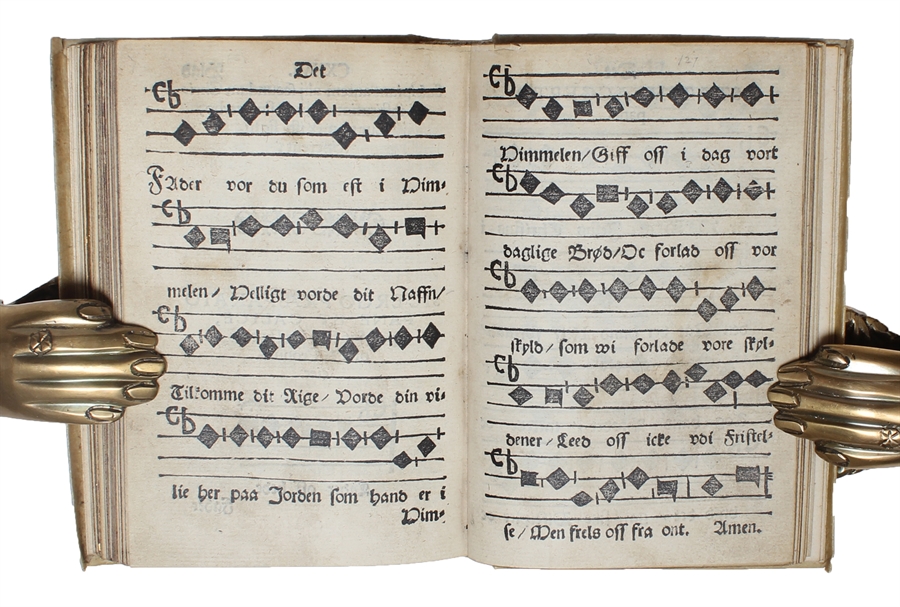 Det
FAder vor du som est i Him-
melen/ Helligt vorde dit Naffn/
Tilkomme dit Rige/ Vorde din vi-
lie her paa Jorden som hand er i
Him-
Himmelen/Giff oss i dag vort
daglige Brød/Oc forlad oss vor
skyld/ som wi forlade vore skyl-
dener/Leed oss icke vdi Fristel-
se/Men frels oss fra ont. Amen.